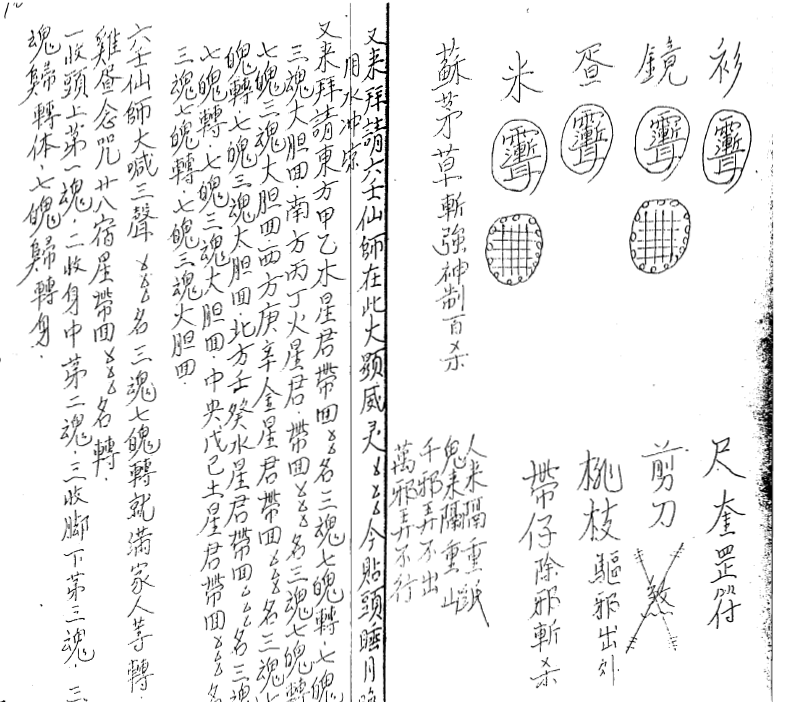 衫 尺奎罡符
鏡 剪刀 煞
昼 桃枝驅邪出外
米 帶仔除邪斬杀
人來隔重紙
鬼來隔重山
千邪弄不出
萬邪弄不行
蘇茅草斬強神制百杀
又来拜請六壬仙師在此大顯威灵厶厶厶今貼頭睡月
用水冲
又来拜請東方甲乙木星君帶回厶厶厶名三魂七魄轉·七魄
三魂大胆回·南方丙丁火星君·帶回厶厶厶名三魂七魄轉
七魄三魂大胆回·西方庚辛金星君帶回厶厶厶名三魂七
魄轉七魄三魂大胆回·北方壬癸水星君帶回厶厶厶名三魂
七魄轉·七魄三魂大胆回·中央戊己土星君帶回厶厶厶名
三魂七魄轉·七魄三魂大胆回·
六壬仙師大喊三聲 厶厶厶名三魂七魄轉就满家人等轉
雞昼念咒廿八宿星帶回厶厶厶名轉·
一收頭上第一魂·二收身中第二魂·三收脚下第三魂·三
魂歸轉体七魄歸轉身·